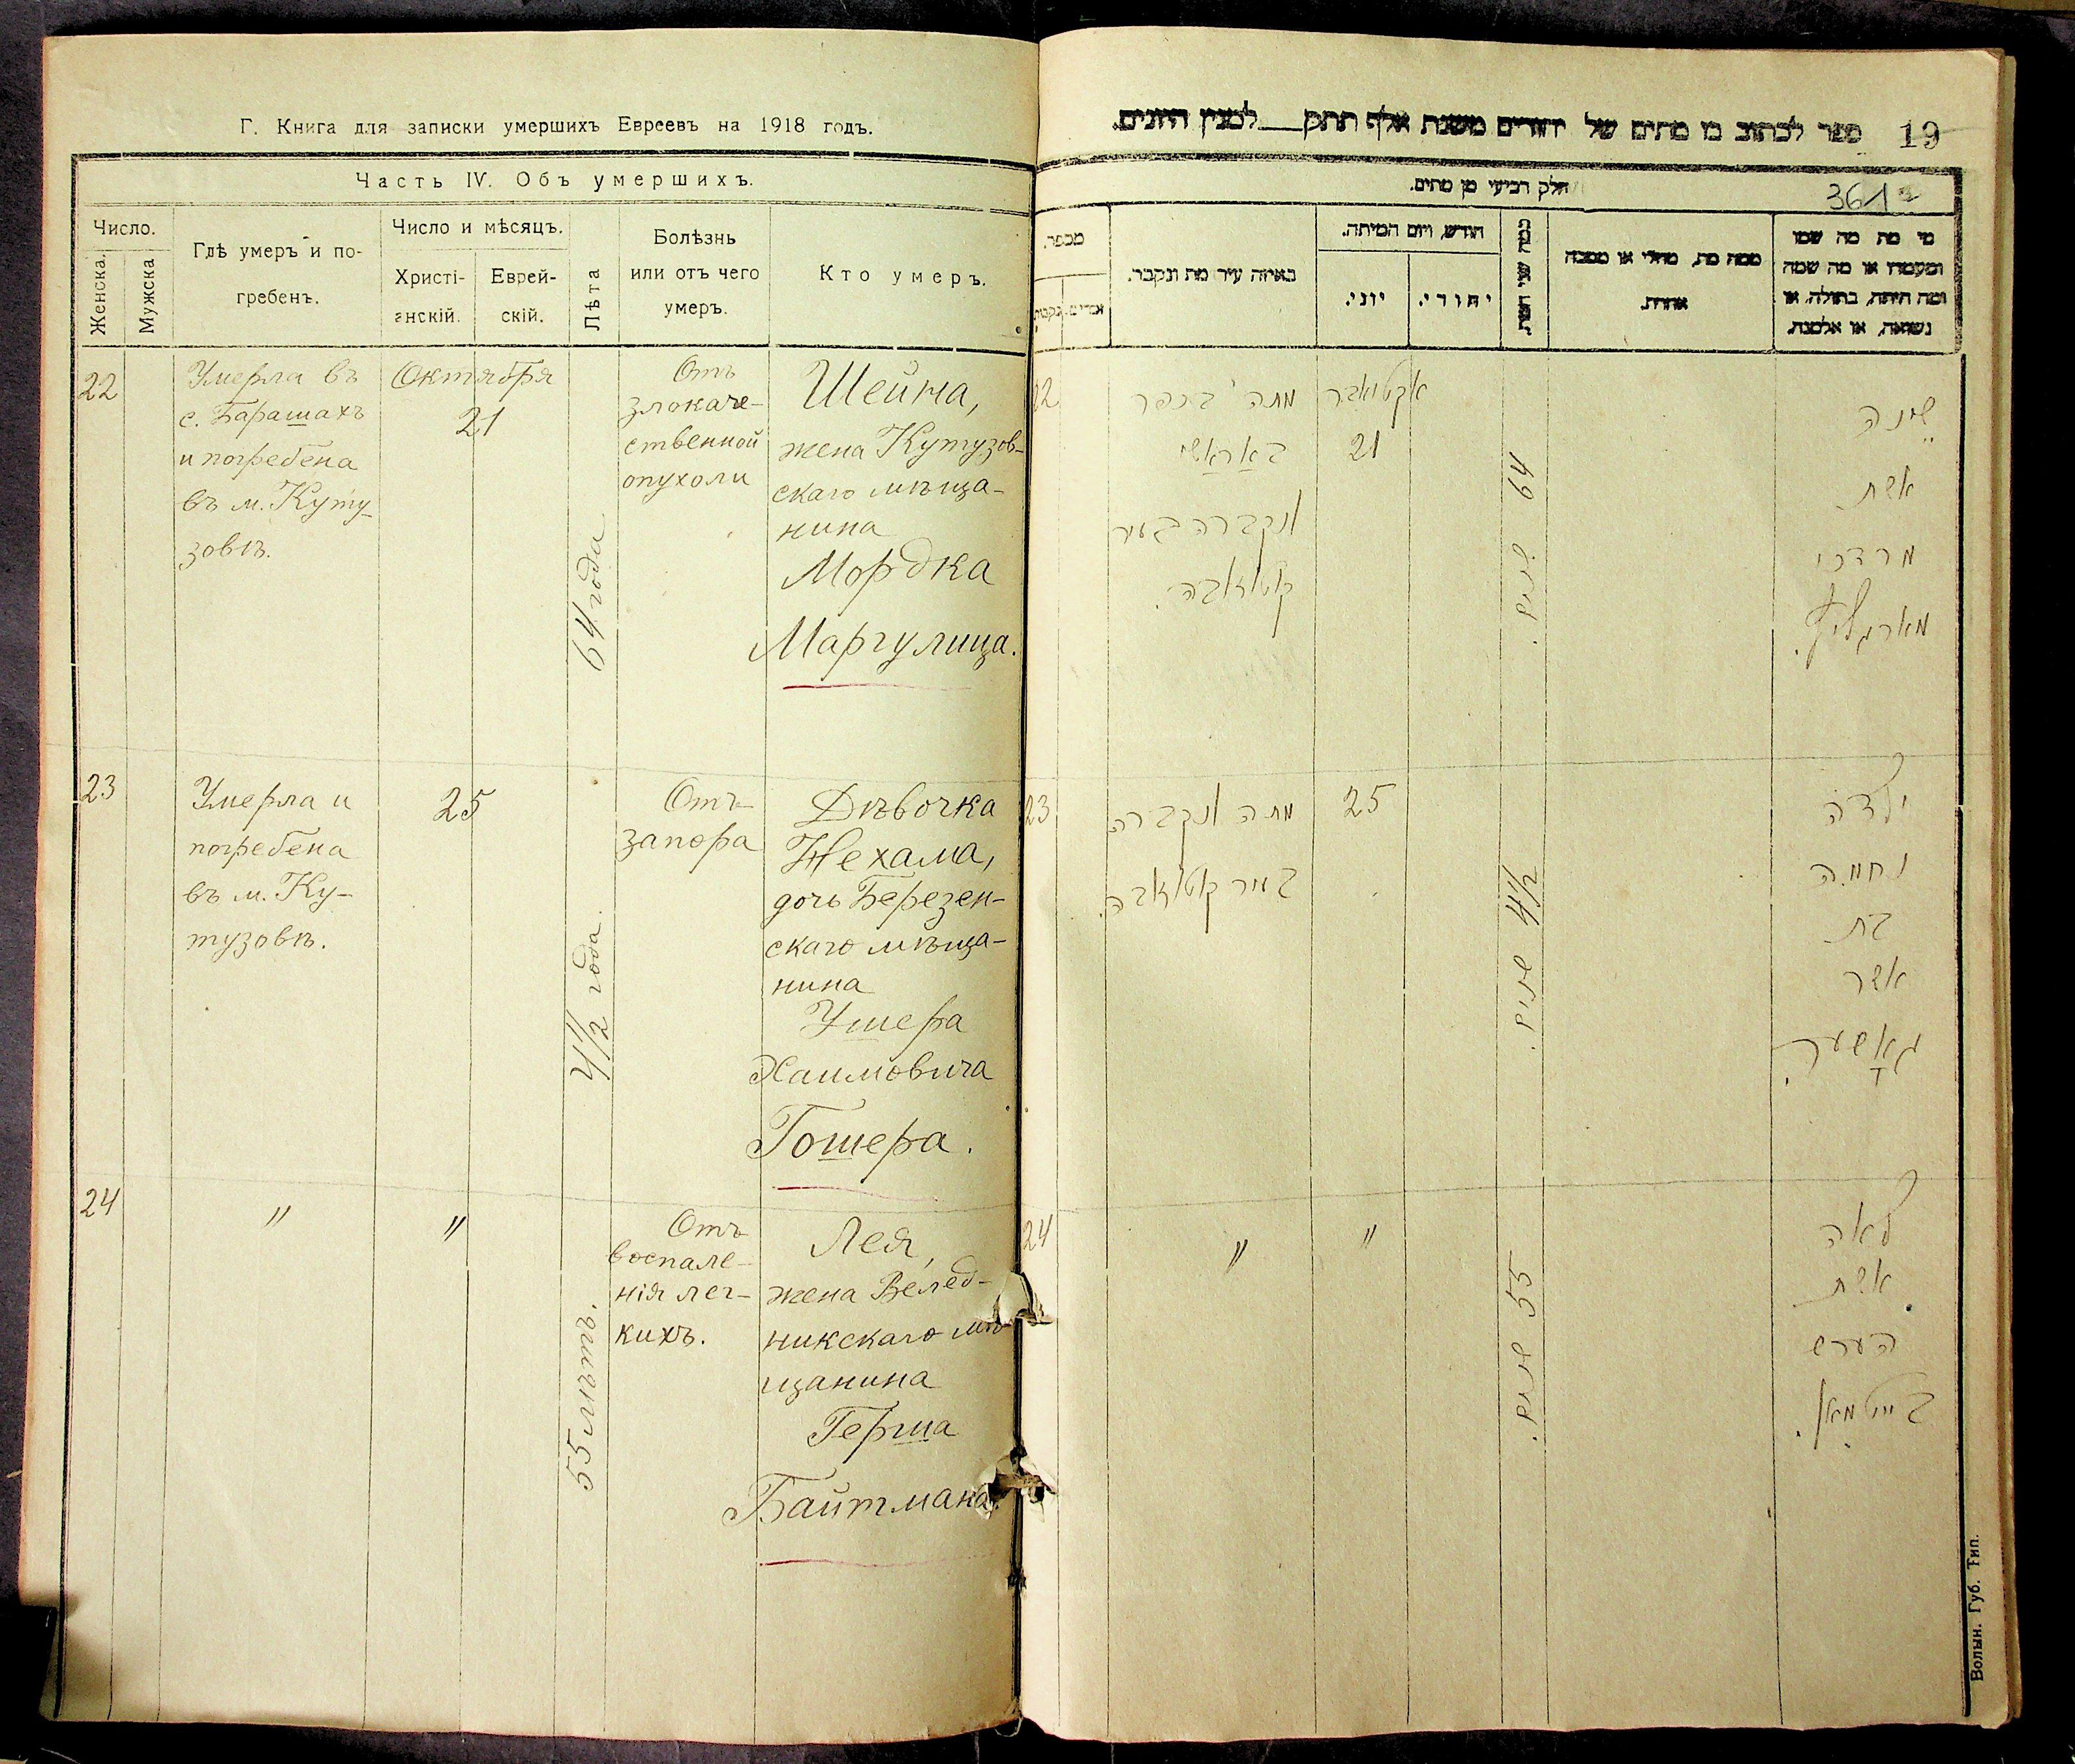 Г. Книга для записки умершихъ Евреевъ на 1918 годъ.
Часть IV. Объ умершихъ.
Число.
Женска.
Мужска
Гдѣ умеръ и по-
гребенъ.
Число и мѣсяцъ.
Христі-
анскій.
Еврей-
скій.
Лѣта
Болѣзнь
или отъ чего
умеръ.
Кто умеръ.
22
Умерла въ
с. Барашахъ
и погребена
въ м. Куту-
зовѣ.
Октября
21
64 года
Отъ
злокаче-
ственной
опухоли
Шейна,
жена Кутузов-
скаго мѣща-
нина
Мордка
Маргулица.
23
Умерла и
погребена
въ м. Ку-
тузовѣ.
25
4 1/2 года.
Отъ
запора
Дѣвочка
Нехама,
дочь Березен-
скаго мѣща-
нина
Ушера
Хаимовича
Гошера.
24
"
"
55 лѣтъ.
Отъ
воспале-
нія лег-
кихъ.
Лея,
жена Велед-
никскаго мѣ-
щанина
Герша
Байтмана.
ספר לכתוב בו מתים של יהודים משנת אלף תתק___למנין היונים.
19
חלק רביעי מן מתים.
361
מספר.
נקבות.
באיזה עיר מת ונקבר.
חודש, ויום המיתה.
יוני.
יהודי.
כמה שני חייו.
ממה מת, מחלי או מסבה
אחרת.
מי מת מה שמו
ומעמדו או מה שמה
ומה היתה, בתולה, או
נשואה, או אלמנה.
22
מתה בכפר
באראשי
ונקברה בעיר
קוטוזאבה.
אקטאבר
21
64 שנים.
שיינה
אשת
מרדכי
מארגוליץ.
23
מתה ונקברה
בעיר קוטוזאבה.
25
4 1/2 שנים.
ילדה
נחמה
בת
אשר
גאשער.
24
"
"
55 שנים.
לאה
אשת
הערש
בייטמאן.
Волын. Губ. Тип.